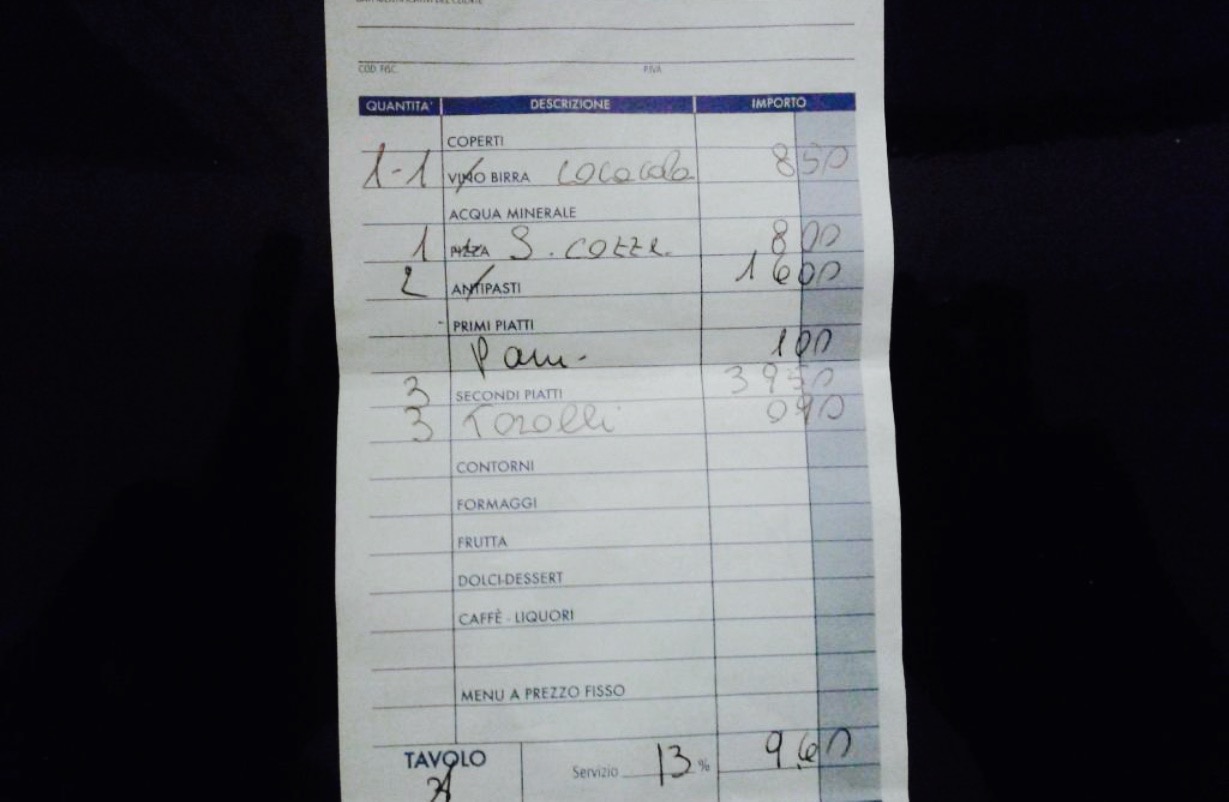 COD. FISC. P.IVA
QUANTITA' DESCRIZIONE IMPORTO
COPERTI
1-1 VINO BIRRA COCACOLA 850
ACQUA MINERALE
1 PIZZA S. COZZE 800
2 ANTIPASTI 1600
PRIMI PIATTI
Pane 100
3 SECONDI PIATTI 3950
3
CONTORNI
FORMAGGI
FRUTTA
DOLCI-DESSERT
CAFFÈ - LIQUORI
MENU A PREZZO FISSO
TAVOLO Servizio 13 % 960